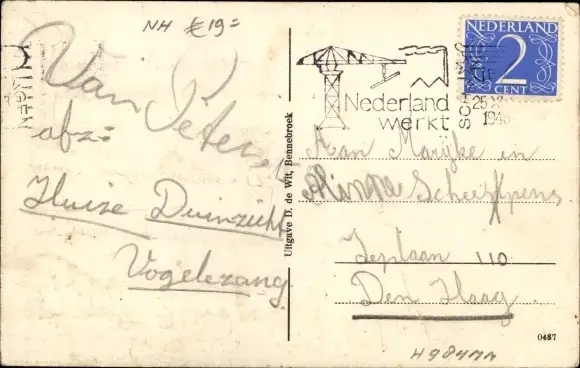 NH £19=
NEDERLAND
2
CENT
Nederland
werkt
Van Peter
afz=
Huize Duinzicht
Vogelezang
Uitgave D. de Wit, Bennebroek
Aan Marijke en
Scheijspens
Ieplaan 110
Den Haag
0487
H984MM